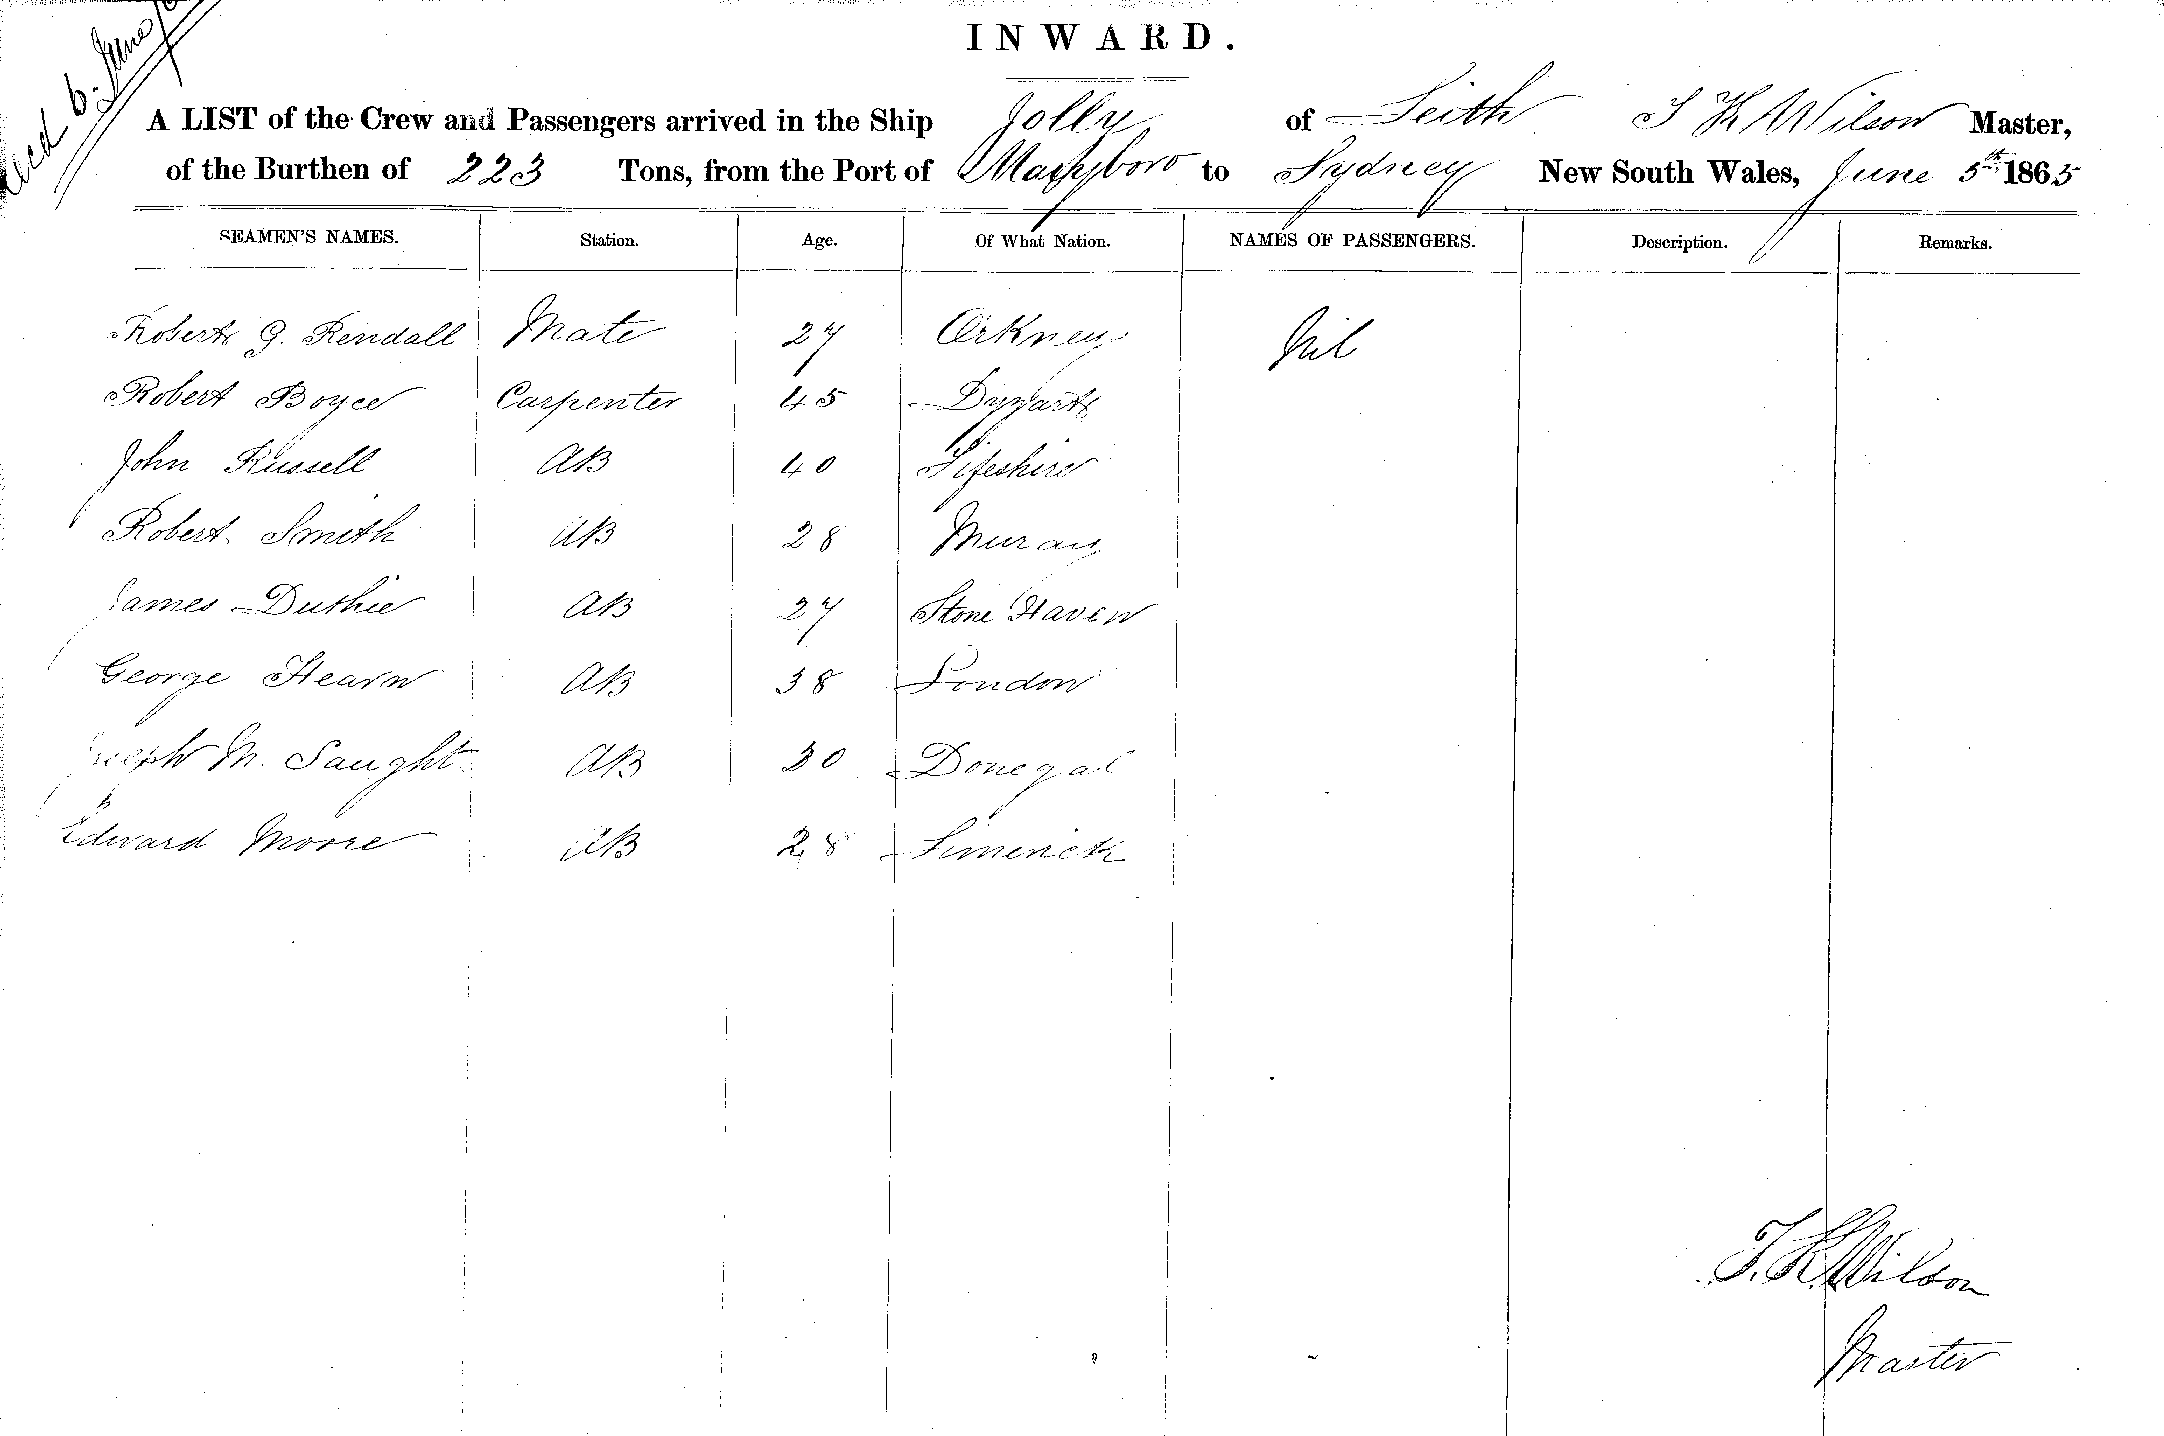 6. June
INWARD.
A LIST of the Crew and Passengers arrived in the Ship Jolly of Leith T K Wilson Master,
of the Burthen of 223 Tons, from the Port of Maryboro to Sydney New South Wales, June 5th 1865
SEAMEN'S NAMES. Station. Age. Of What Nation. NAMES OF PASSENGERS. Description. Remarks.
Robert G. Rendall Mate 27 Orkney Nil
Robert Boyce Carpenter 45 Dysart
John Russell AB 40 Fifeshire
Robert Smith AB 28 Muray
James Duthie AB 27 Stone Haven
George Hearn AB 38 London
Joseph M. Saught AB 30 Donegal
Edward Moore AB 28 Limerick
T. K. Wilson
Master